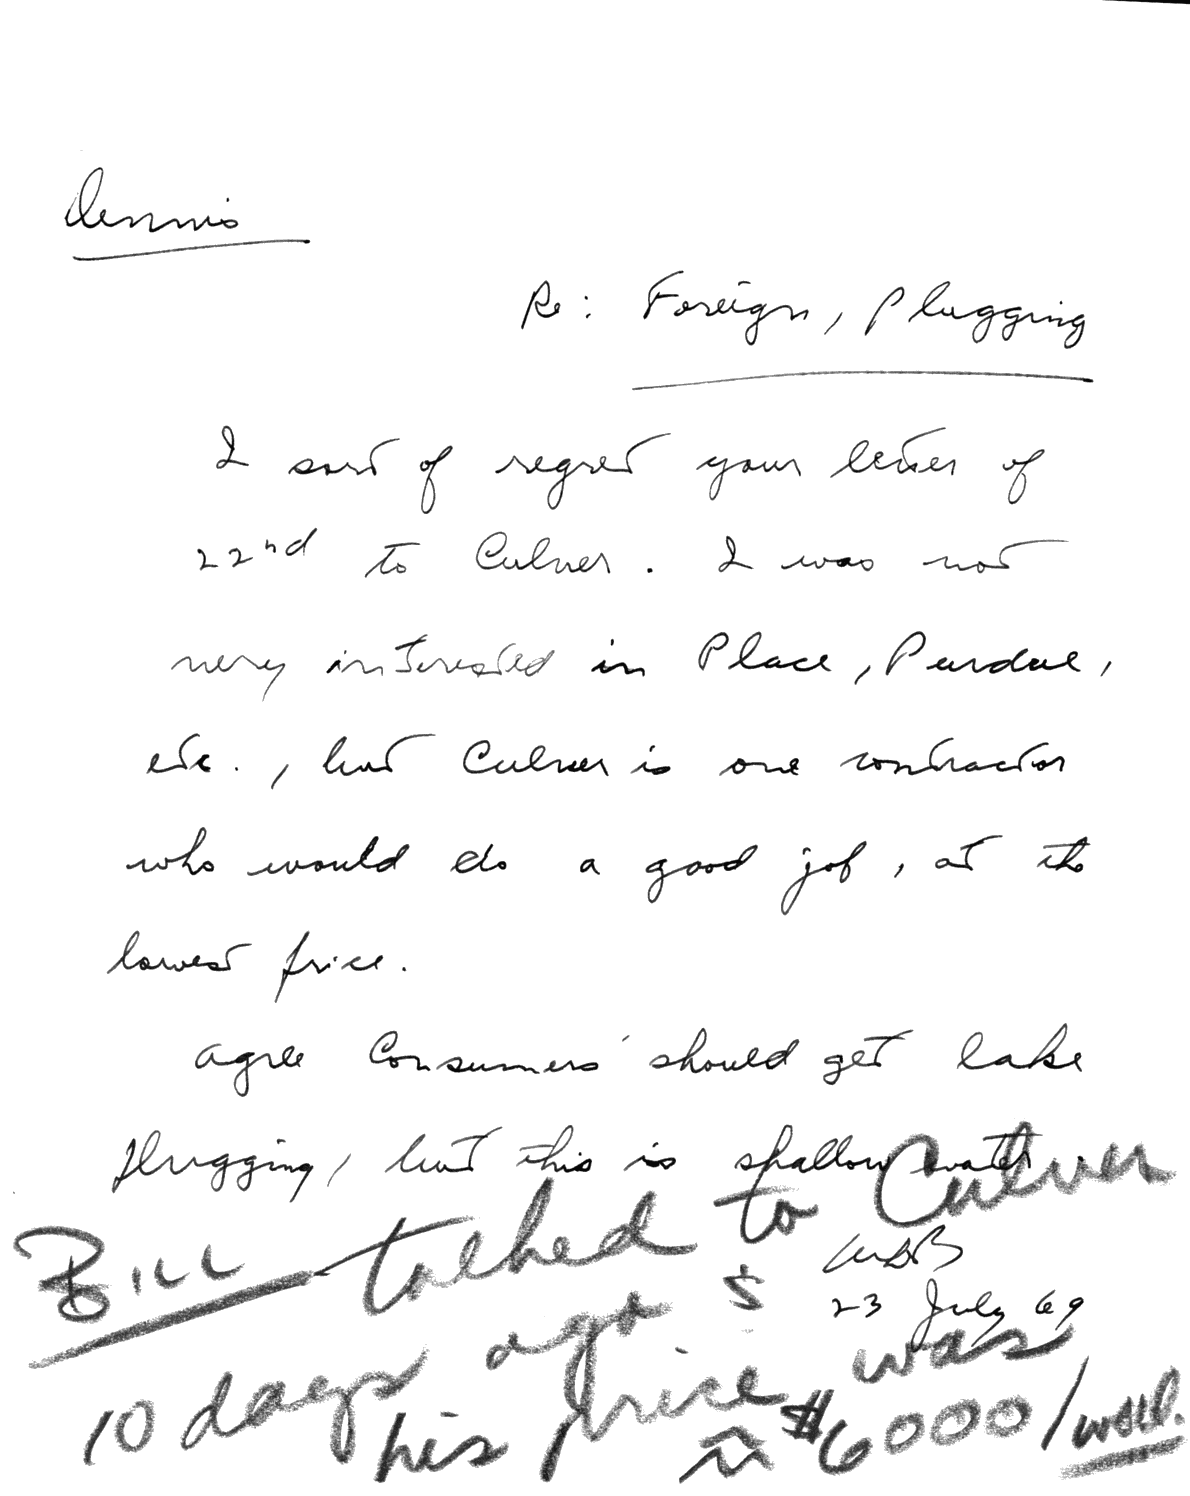 Dennis
Re: Foreign, Plugging
I sort of regret your letter of
22nd to Culver. I was not
very interested in Place, Purdue,
etc., but Culver is one contractor
who would do a good job, at the
lowest price.
Agree Consumers' should get lake
plugging, but this is shallow water.
WDB
23 July 69
Bill talked to Culver
10 days ago &
his price was
≈ $6000/well.